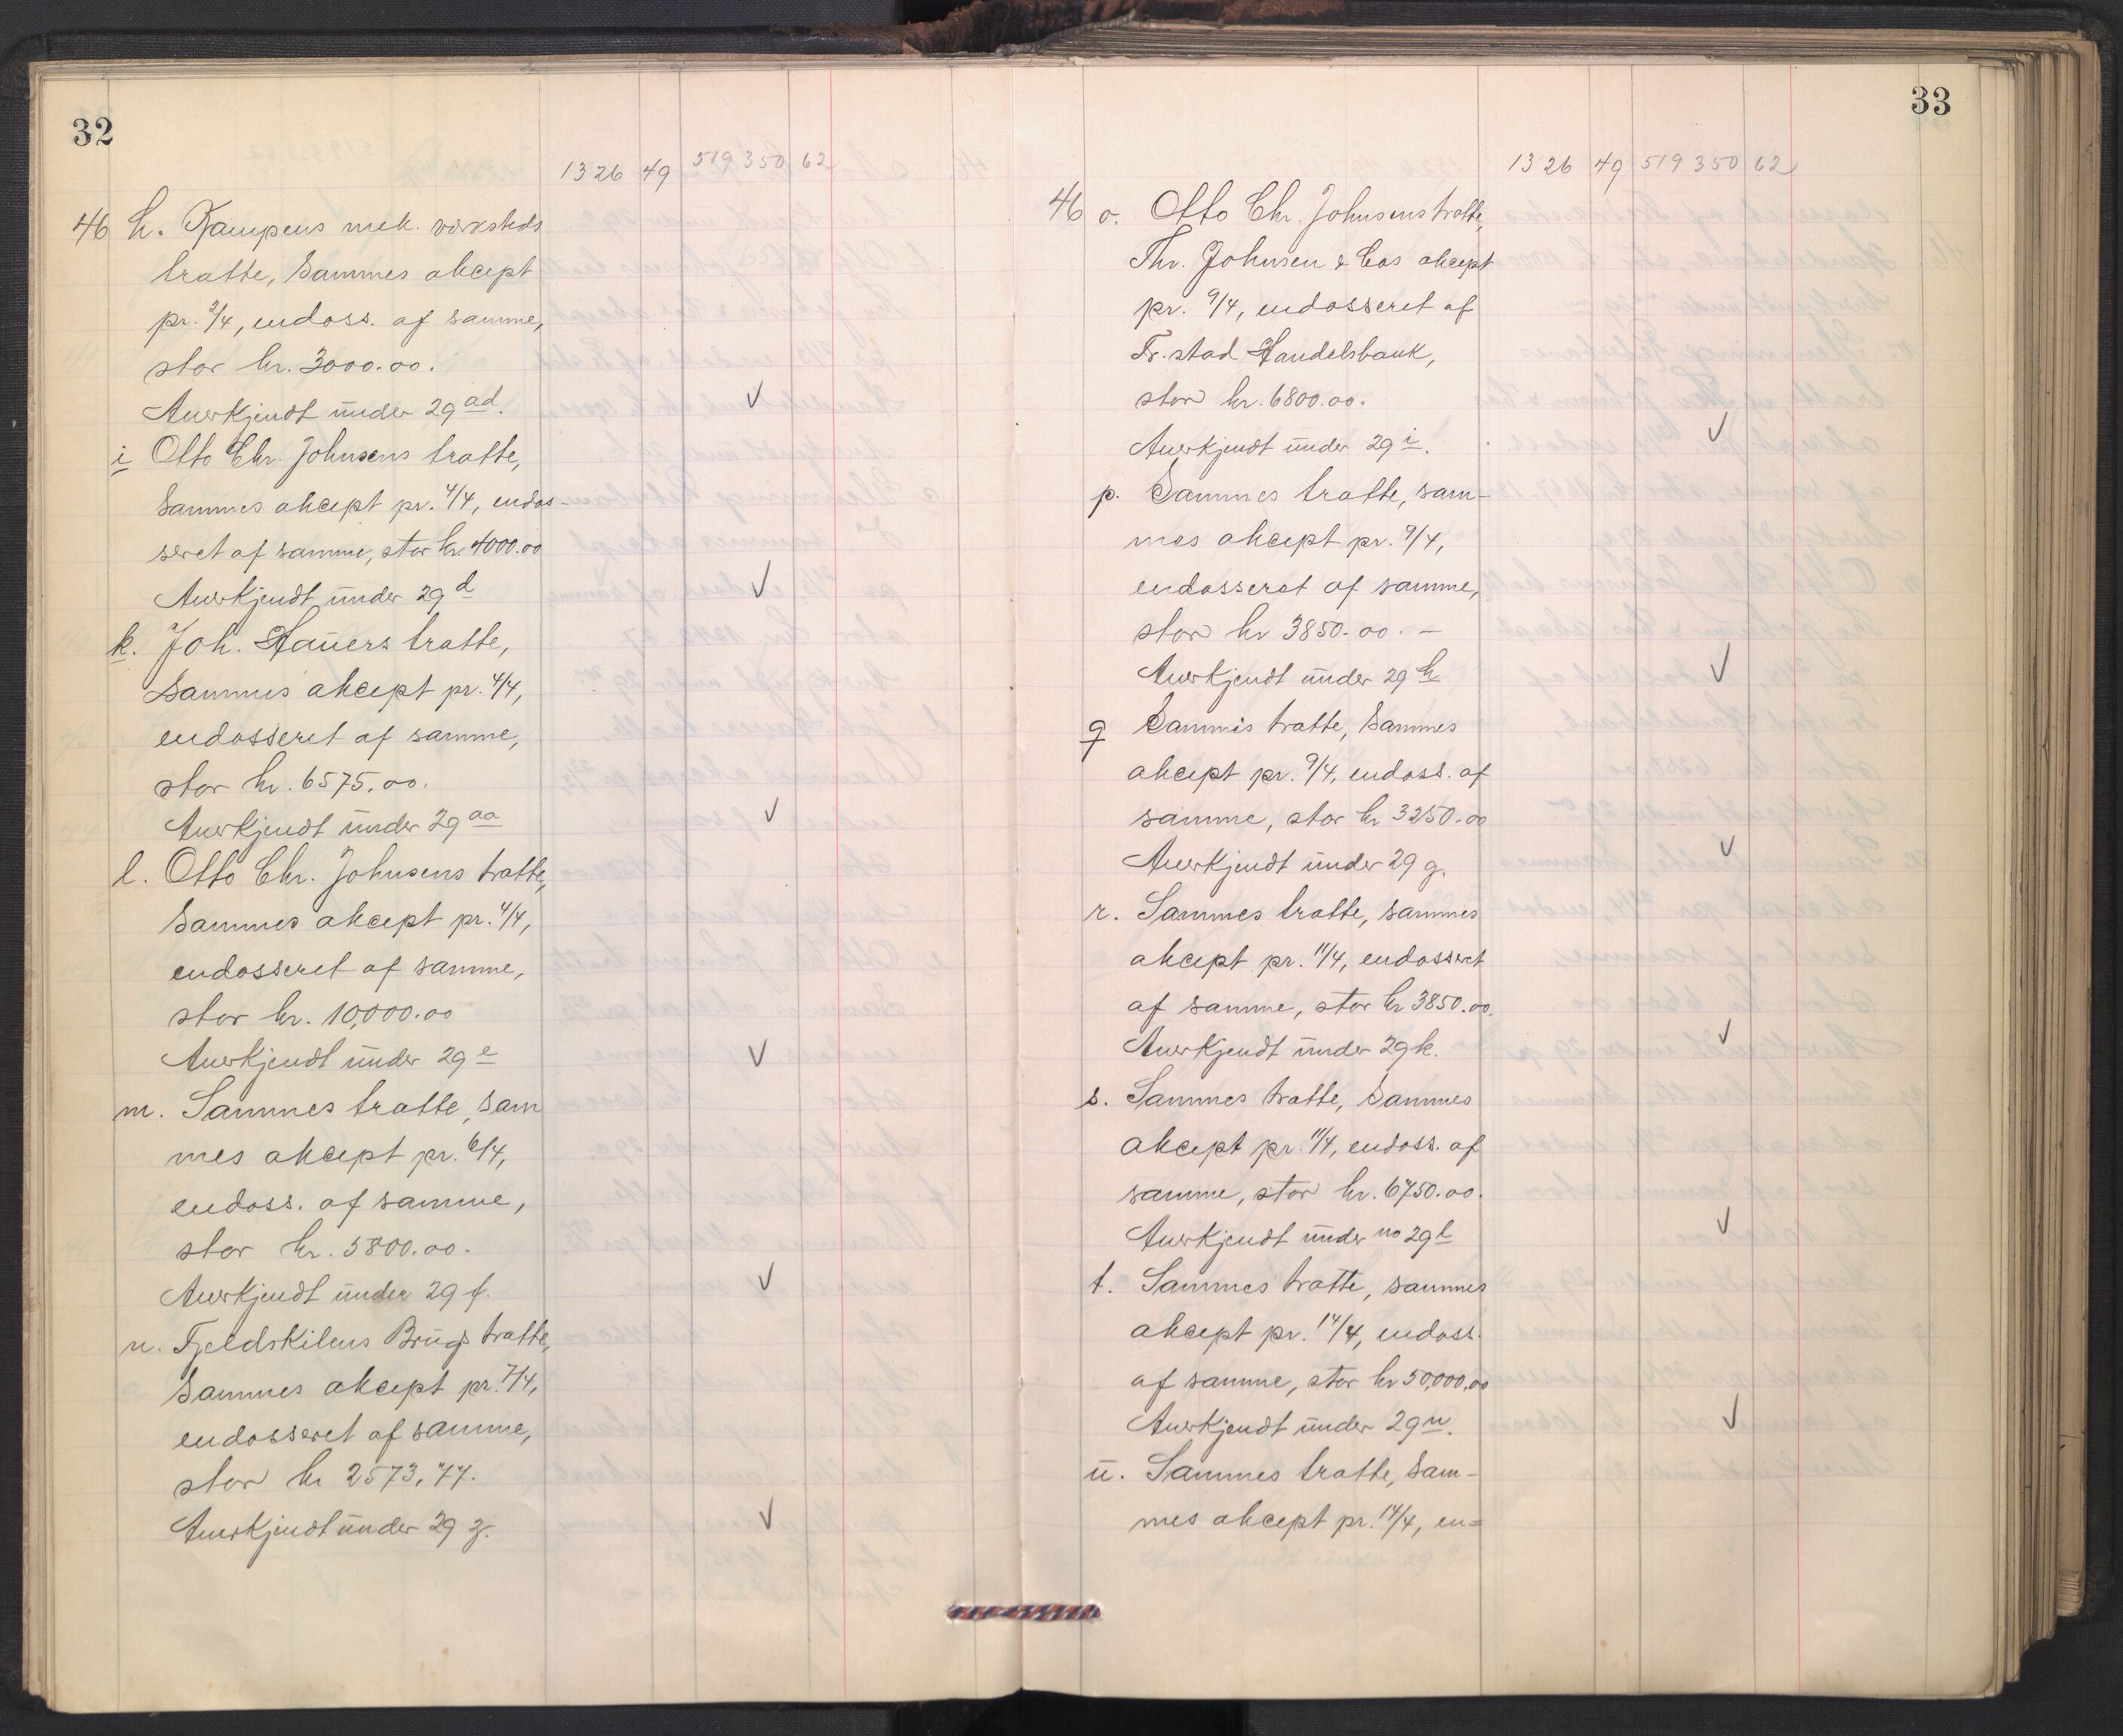 32
1326 49 519350 62
46 h. Kampens mek. værksteds
tratte, sammes akcept
pr. 3/4, endoss. af samme,
stor kr. 3000.00.
Anerkjendt under 29 ad.
i Otto Chr. Johnsens tratte,
sammes akcept pr. 4/4, endos-
seret af samme, stor kr. 4000.00
Anerkjendt under 29 d
k. Joh. Hauers tratte,
sammes akcept pr. 4/4,
endosseret af samme,
stor kr. 6575,00.
Anerkjendt under 29 aa
l. Otto Chr. Johnsens tratte,
sammes akcept pr. 4/4,
endosseret af samme,
stor kr. 10,000.00
Anerkjendt under 29 e
m. Sammes tratte, sam
mes akcept pr. 6/4,
endoss. af samme,
stor kr. 5800.00.
Anerkjendt under 29 f.
n. Fjeldskilens Brugs tratte,
sammes akcept pr. 7/4,
endosseret af samme,
stor kr 2573,77.
Anerkjendt under 29 z.
33
1326 49 519350 62
46 o. Otto Chr. Johnsens tratte,
Thr. Johnsen & Cos akcept
pr. 9/4, endosseret af
Fr.stad Handelsbank,
stor kr. 6800.00.
Anerkjendt under 29 i.
p. Sammes tratte, sam-
mes akcept pr. 9/4,
endosseret af samme,
stor kr 3850.00. -
Anerkjendt under 29 h
q Sammes tratte, sammes
akcept pr. 9/4, endoss. af
samme, stor kr 3250.00
Anerkjendt under 29 g.
r. Sammes tratte, sammes
akcept pr. 11/4, endosseret
af samme, stor kr 3850.00.
Anerkjendt under 29 k.
s. Sammes tratte, sammes
akcept pr. 11/4, endoss. af
samme, stor kr. 6750.00.
Anerkjendt under no 29 l
t. Sammes tratte, sammes
akcept pr. 14/4, endoss.
af samme, stor kr 50,000,00
Anerkjendt under 29 n.
u. Sammes tratte, sam-
mes akcept pr. 14/4, en=